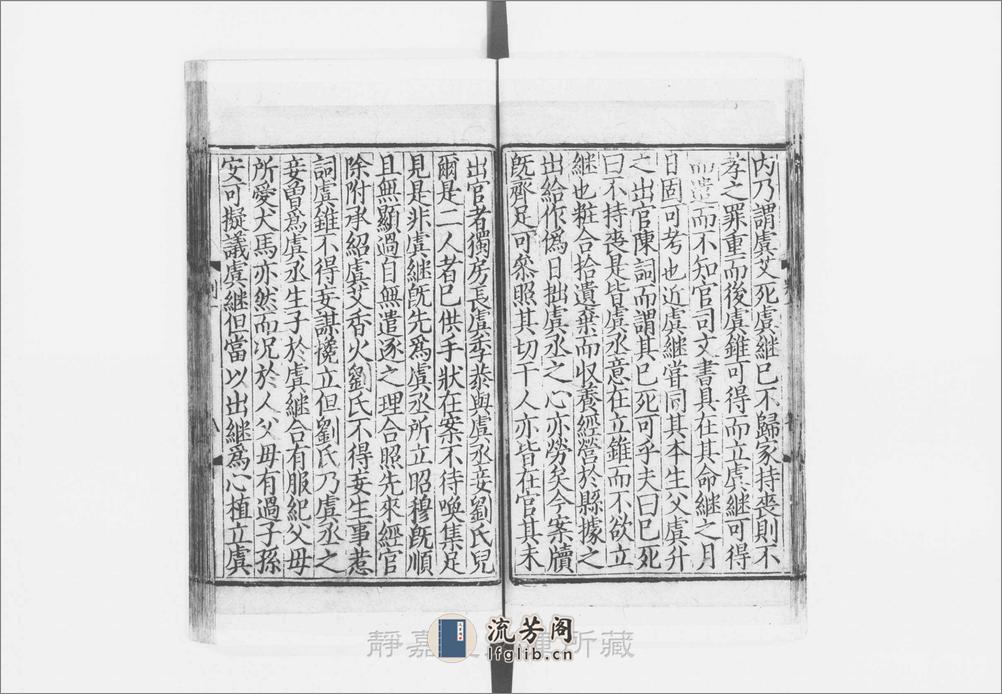 內乃謂虞艾死虞繼已不歸家持喪則不
孝之罪重而後虞錐可得而立虞繼可得
而遣而不知官司文書具在其命繼之月
日固可考也近虞繼嘗同其本生父虞升
之出官陳詞而謂其已死可乎夫曰已死
曰不持喪是皆虞丞意在立錐而不欲立
繼也粧合拾遺棄而収養經營於縣據之
出給作僞日拙虞丞之心亦勞矣今案牘
旣齊足可叅照其切干人亦皆在官其未
出官者獨房長虞季恭與虞丞妾劉氏兒
爾是二人者已供手狀在案不待喚集足
見是非虞繼旣先爲虞丞所立昭穆旣順
且無顯過自無遣逐之理合照先來經官
除附承紹虞艾香火劉氏不得妄生事惹
詞虞錐不得妄謀攙立但劉氏乃虞丞之
妾曾爲虞丞生子於虞繼合有服紀父母
所愛犬馬亦然而况於人父母有過子孫
安可擬議虞繼但當以出繼爲心植立虞
靜嘉 所藏
流芳阁
lfglib.cn